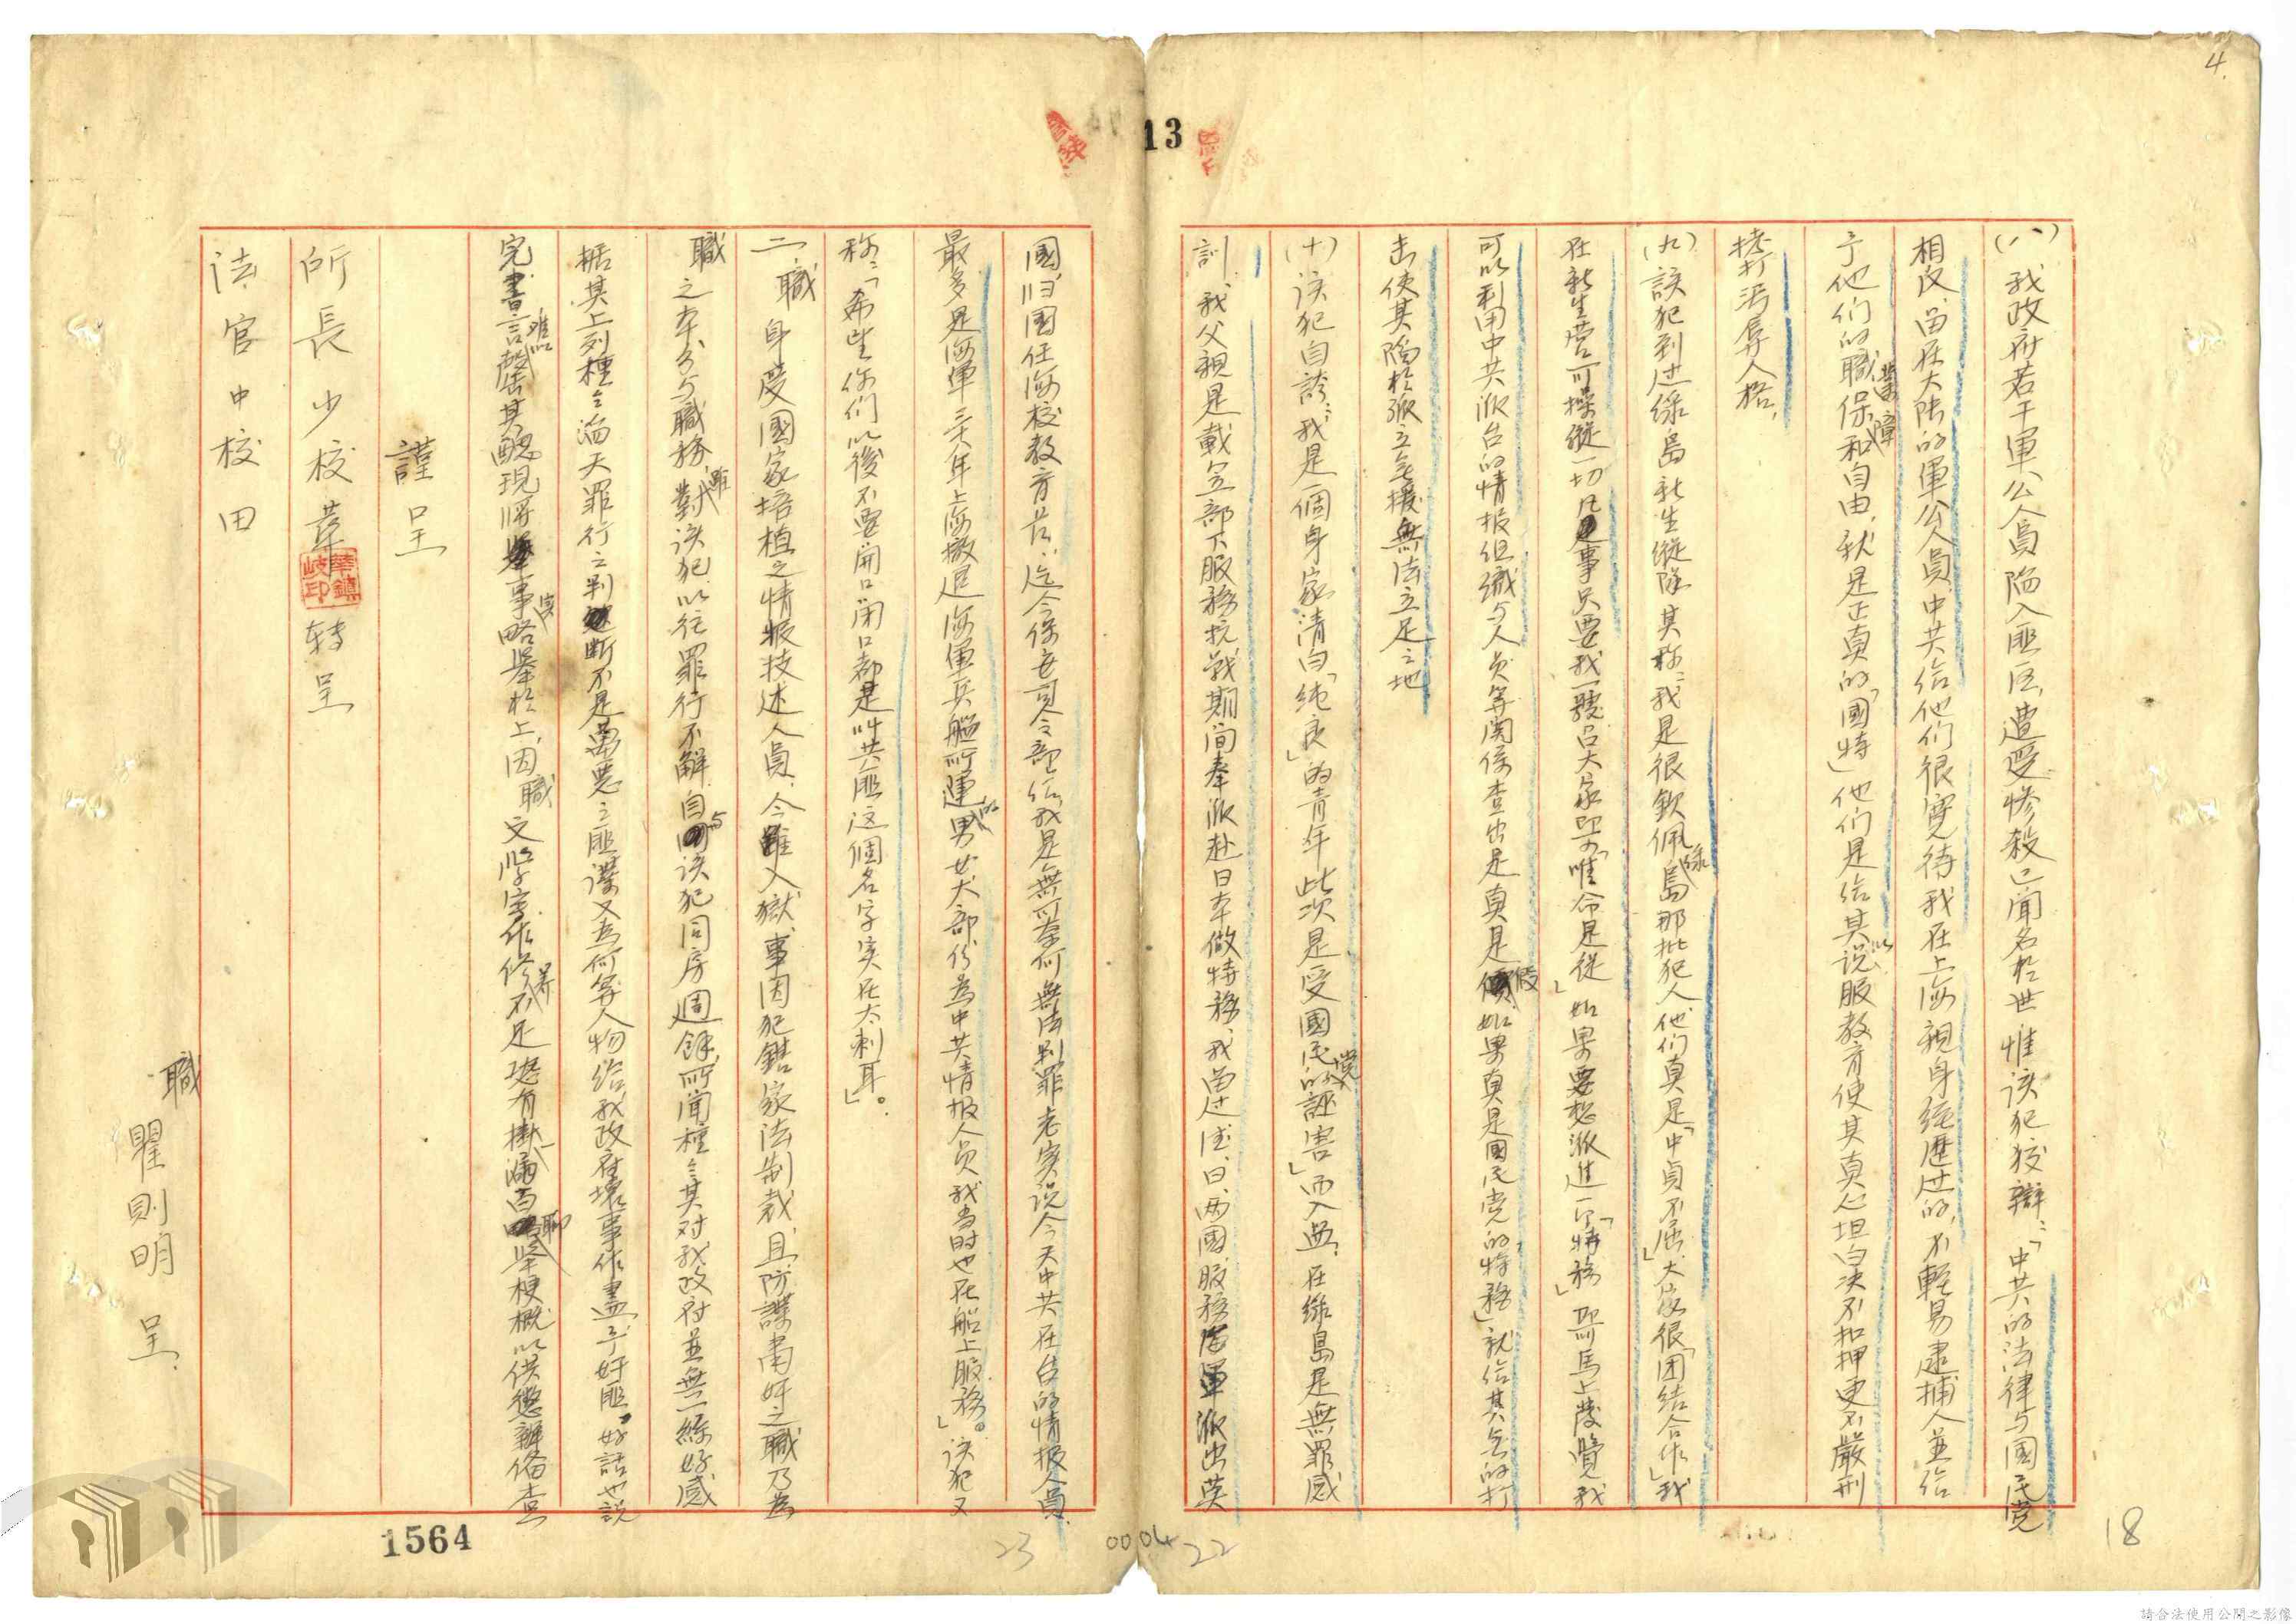 4.
13
(八)我政府若干軍公人員陷入匪區,遭受慘殺已聞名於世惟該犯狡辯:「中共的法律与國民党
相反,留在大陆的軍公人員,中共給他们很寬待我在上海親身經歷过的,不輕易逮捕人並給
予他们的職業保障和自由,就是正真的「國特」他们是給其以说服教育使其真心坦白决不扣押更不嚴刑
拷打污辱人格,
(九)該犯到过綠島新生縱隊其称:我是很欽佩綠島那批犯人,他们真是「中貞不屈」大家很「团結合作」我
在新生营可操縱一切凡事只要我一號召大家即「唯命是從」如果要想派進一个「特務」即馬上發覺我
可以利用中共派台的情报组織与人员等関係查出是真是假,如果真是國民党的「特務」就給其無的打
击使其陷於孤立無援無法立足之地
(十)该犯自誇:我是一個身家清白「純良」的青年此次是受國民党的「誣害」而入監,在綠島是無罪感
訓,我父親是戴笠部下服務抗戰期间奉派赴日本做特務,我留过法,日兩國服務海軍派出英
國,归國任海校教育长,迄今保安司令部給我是無可奈何無法判罪老实说今天中共在台的情报人員
最多是海軍三十八年上海撤退海軍兵艦所運的男女大部份為中共情报人员我当時也在船上服務」。该犯又
称:「希望你们以後不要開口闭口都是叫共匪这個名字实在太刺耳」。
二、職身受國家培植之情报技述人員,今雖入獄,事因犯錯家法制裁,且防諜肅奸之職乃為
職之本分与職務,雖對该犯以往罪行不解自与该犯同房週餘,所聞種々其对我政府並無一絲好感
据其上列種々滔天罪行之判断不是萬惡之匪諜又為何等人物給我政府壞事作盡予奸匪,好話也說
完書言難以罄其醜現將事实略舉於上,因職文化学字作修养不足恐有掛一漏百聊举梗概以供懲辦俻查
謹呈
所長少校華轉呈
華鎮岐印
法官中校田
職瞿則明呈.
1564
23
0004
22
18
請合法使用公開之影像